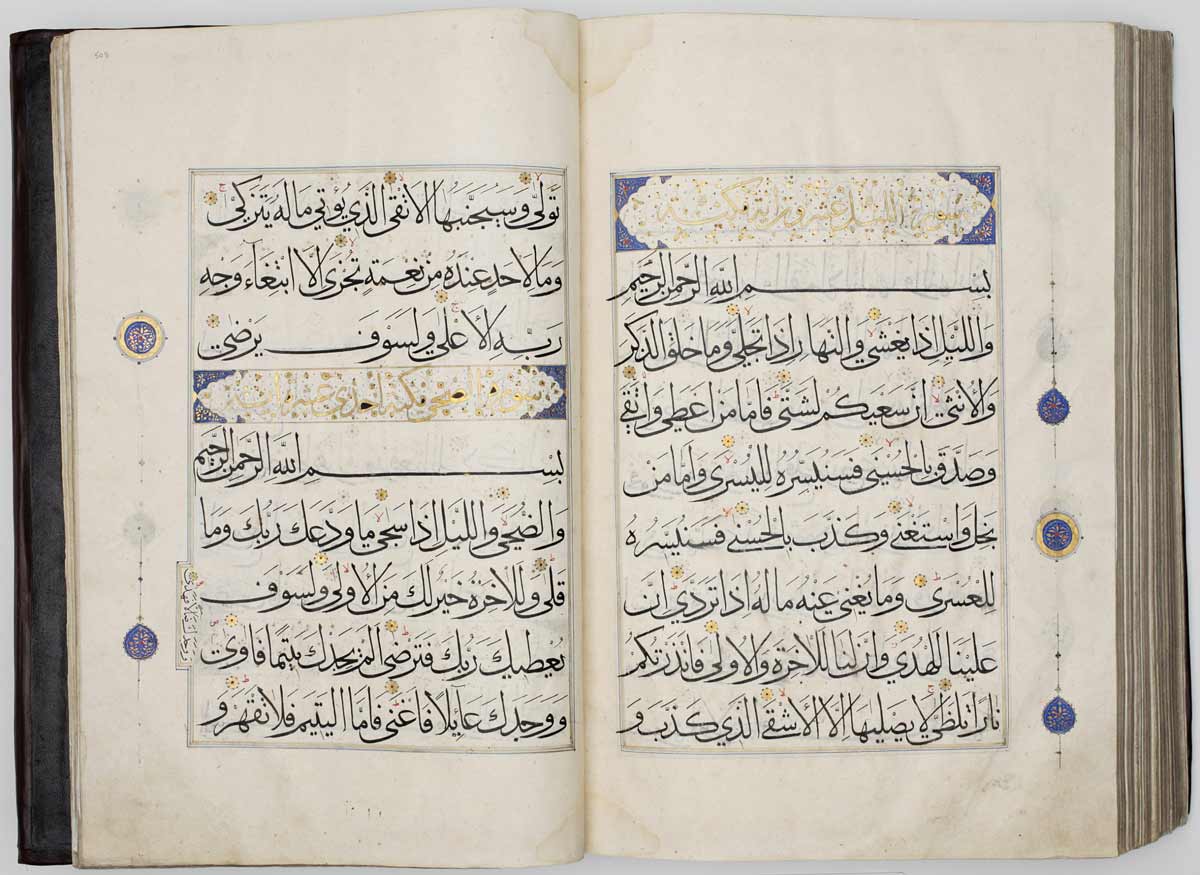 سورة الليل عشرون اية مكية
بسم الله الرحمن الرحيم
والليل اذا يغشى والنهار اذا تجلى وما خلق الذكر
والانثى ان سعيكم لشتى فاما من اعطى واتقى
وصدق بالحسنى فسنيسره لليسرى واما من
بخل واستغنى وكذب بالحسنى فسنيسره
للعسرى وما يغنى عنه ماله اذا تردى ان
علينا للهدى وان لنا للاخرة والاولى فانذرتكم
نارا تلظى لا يصليها الا الاشقى الذي كذب و
تولى وسيجنبها الاتقى الذي يؤتي ماله يتزكى
وما لاحد عنده من نعمة تجزى الا ابتغاء وجه
ربه الاعلى ولسوف يرضى
سورة الضحى مكية احدى عشرة اية
بسم الله الرحمن الرحيم
والضحى والليل اذا سجى ما ودعك ربك وما
قلى وللاخرة خير لك من الاولى ولسوف
يعطيك ربك فترضى الم يجدك يتيما فاوى
ووجدك ضالا فهدى
ووجدك عائلا فاغنى فاما اليتيم فلا تقهر و